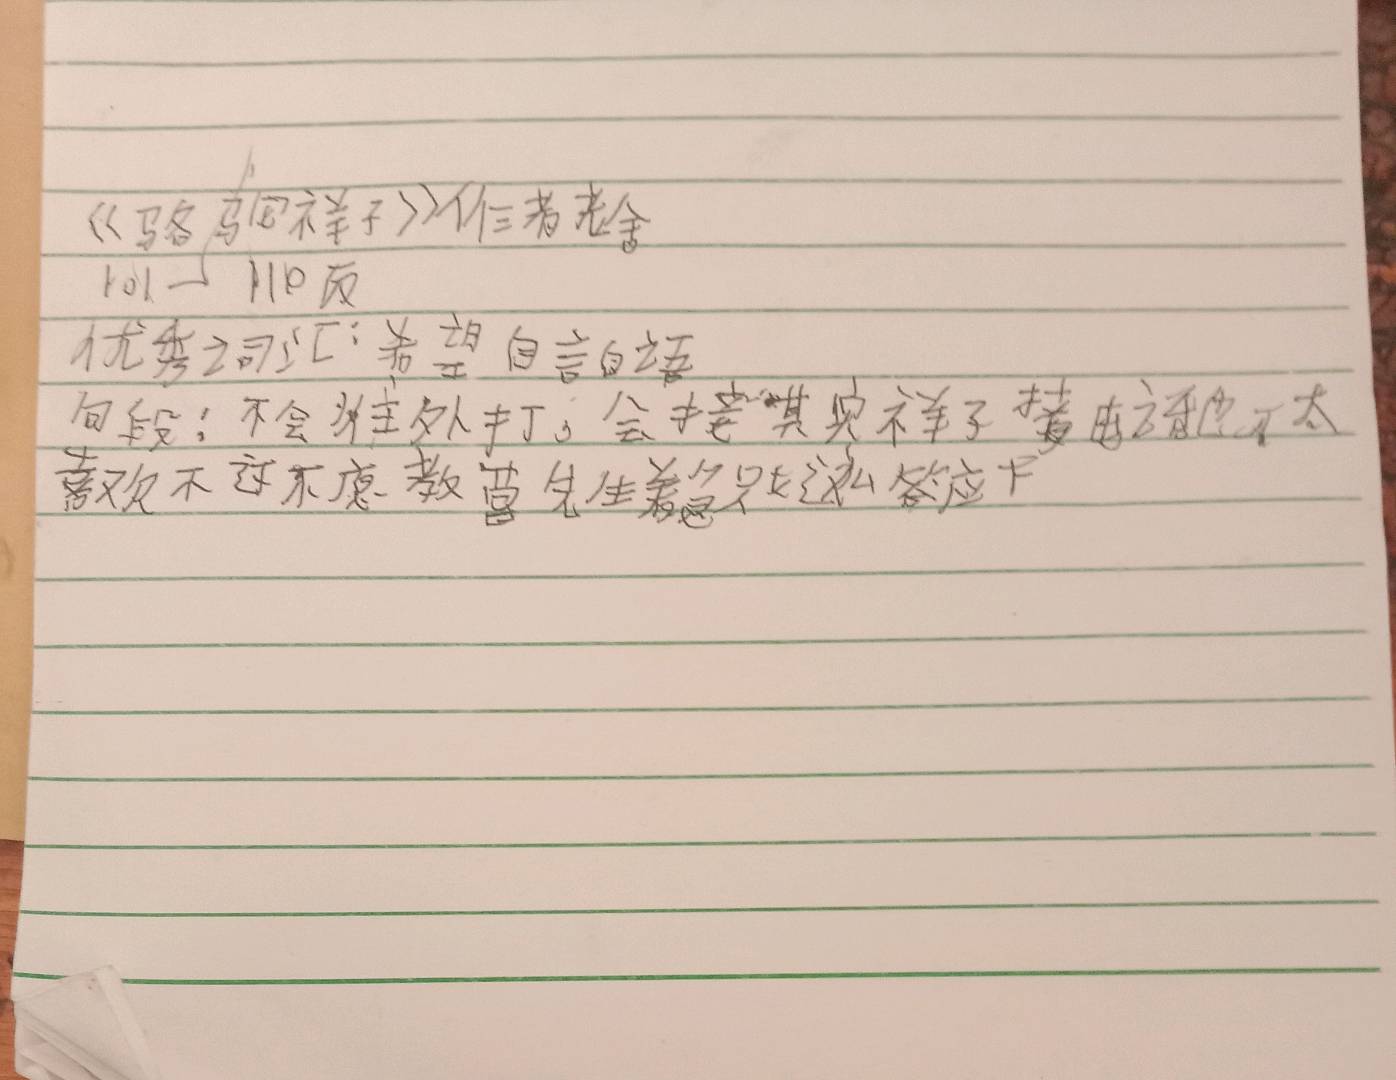 《骆驼祥子》作者老舍
101一110页
优秀词汇:希望 自言自语
句段:不会往外打,会接 其实祥子接电话也不太
喜欢不过不愿教曹先生着急只好这么答应下